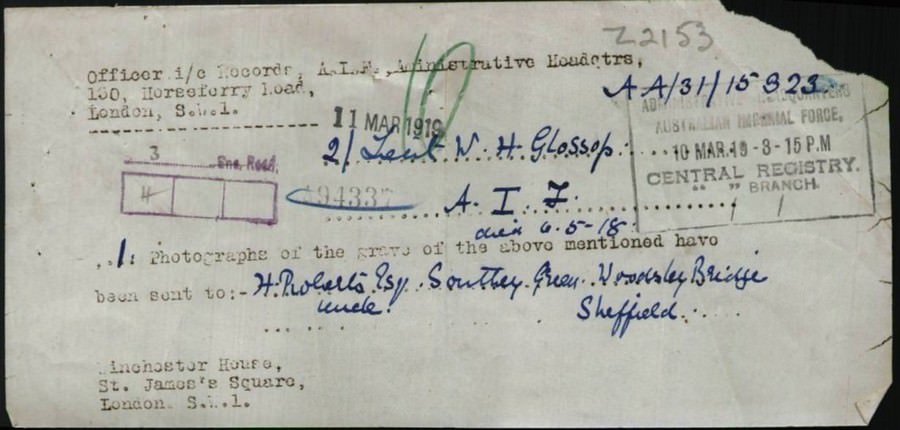 Z2153
Officer i/c Records, A.I.F., Administrative Headqtrs,
130, Horseferry Road,
London, S.W.1.
AA/31/15823
11 MAR 1919
ADMINISTRATIVE HEADQUARTERS
AUSTRALIAN IMPERIAL FORCE,
10 MAR.19 -3-15 P.M
CENTRAL REGISTRY.
" " BRANCH.
2/ Lieut W. H. Glossop.
3
Enc. Recd.
4
A. I. F.
died 6-5-18.
1. Photographs of the grave of the above mentioned have
been sent to:- H. Roberts Esq. Southey Green. Wadsley Bridge
uncle. Sheffield.
Winchester House,
St. James's Square,
London. S.W.1.